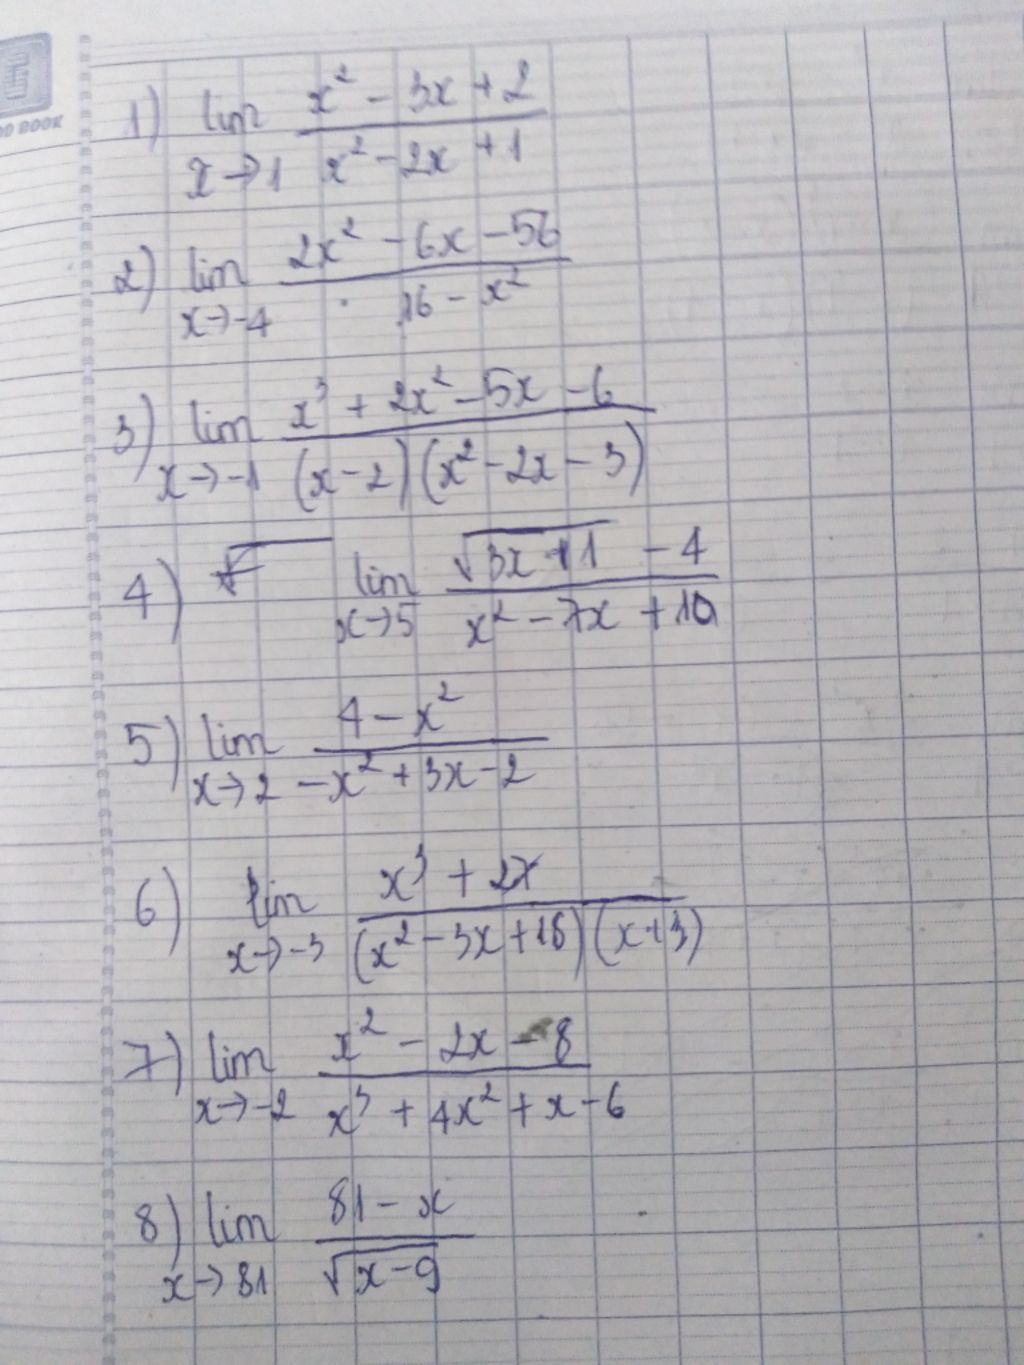 OD BOOK
1) lim x→1 (x² - 3x + 2)/(x² - 2x + 1)
2) lim x→-4 (2x² - 6x - 56)/(16 - x²)
3) lim x→-1 (x³ + 2x² - 5x - 6)/((x - 2)(x² - 2x - 3))
4) √ lim x→5 (√(3x + 1) - 4)/(x² - 7x + 10)
5) lim x→2 (4 - x²)/(-x² + 3x - 2)
6) lim x→-3 (x³ + 27)/((x² - 3x + 18)(x + 3))
7) lim x→-2 (x² - 2x - 8)/(x³ + 4x² + x - 6)
8) lim x→81 (81 - x)/√(x - 9)